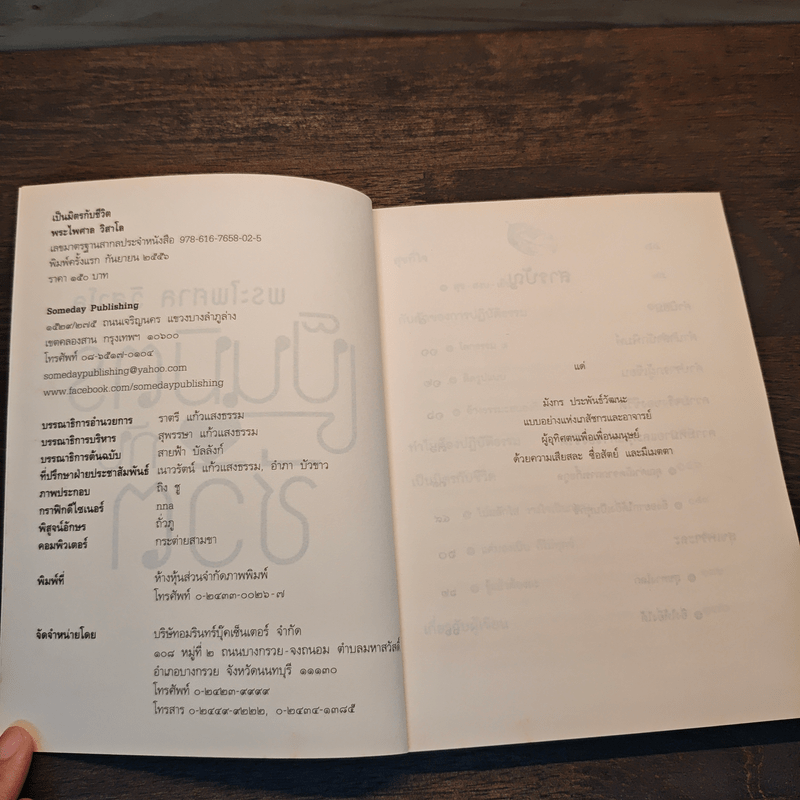 เป็นมิตรกับชีวิต
พระไพศาล วิสาโล
เลขมาตรฐานสากลประจำหนังสือ 978-616-7658-02-5
พิมพ์ครั้งแรก กันยายน ๒๕๕๖
ราคา ๑๕๐ บาท
Someday Publishing
๑๕๒๙/๒๗๕ ถนนเจริญนคร แขวงบางลำภูล่าง
เขตคลองสาน กรุงเทพฯ ๑๐๖๐๐
โทรศัพท์ ๐๘-๖๕๑๗-๐๑๐๔
somedaypublishing@yahoo.com
www.facebook.com/somedaypublishing
บรรณาธิการอำนวยการ ราตรี แก้วแสงธรรม
บรรณาธิการบริหาร สุพรรษา แก้วแสงธรรม
บรรณาธิการต้นฉบับ สายฟ้า บัลลังก์
ที่ปรึกษาฝ่ายประชาสัมพันธ์ เนาวรัตน์ แก้วแสงธรรม, อำภา บัวขาว
ภาพประกอบ ถิง ชู
กราฟิกดีไซเนอร์ กกล
พิสูจน์อักษร ถั่วภู
คอมพิวเตอร์ กระต่ายสามขา
พิมพ์ที่ ห้างหุ้นส่วนจำกัดภาพพิมพ์
โทรศัพท์ ๐-๒๔๓๓-๐๐๒๖-๗
จัดจำหน่ายโดย บริษัทอมรินทร์บุ๊คเซ็นเตอร์ จำกัด
๑๐๘ หมู่ที่ ๒ ถนนบางกรวย-จงถนอม ตำบลมหาสวัสดิ์
อำเภอบางกรวย จังหวัดนนทบุรี ๑๑๑๓๐
โทรศัพท์ ๐-๒๔๒๓-๙๙๙๙
โทรสาร ๐-๒๔๔๙-๙๒๒๒, ๐-๒๔๓๔-๑๓๘๕
แด่
มังกร ประพันธ์วัฒนะ
แบบอย่างแห่งเภสัชกรและอาจารย์
ผู้อุทิศตนเพื่อเพื่อนมนุษย์
ด้วยความเสียสละ ซื่อสัตย์ และมีเมตตา